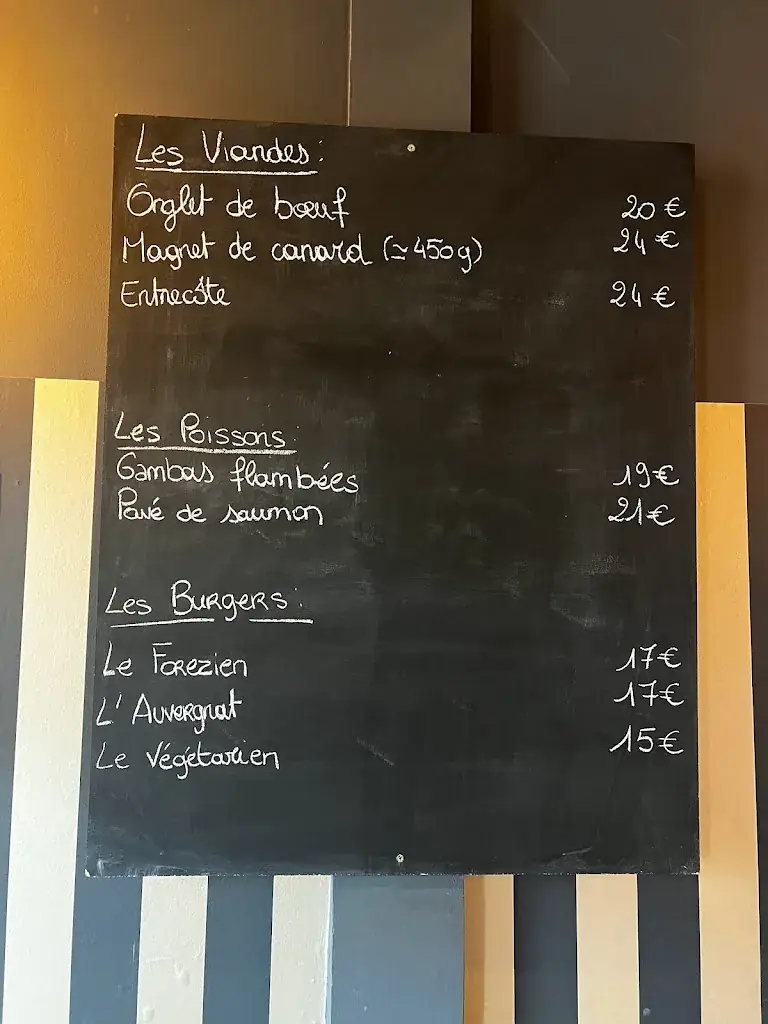 Les Viandes :
Onglet de bœuf 20 €
Magret de canard (≃ 450g) 24 €
Entrecôte 24 €
Les Poissons :
Gambas flambées 19€
Pavé de saumon 21€
Les Burgers :
Le Forezien 17€
L'Auvergnat 17€
Le végétarien 15€